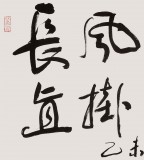 長風
直掛
乙未